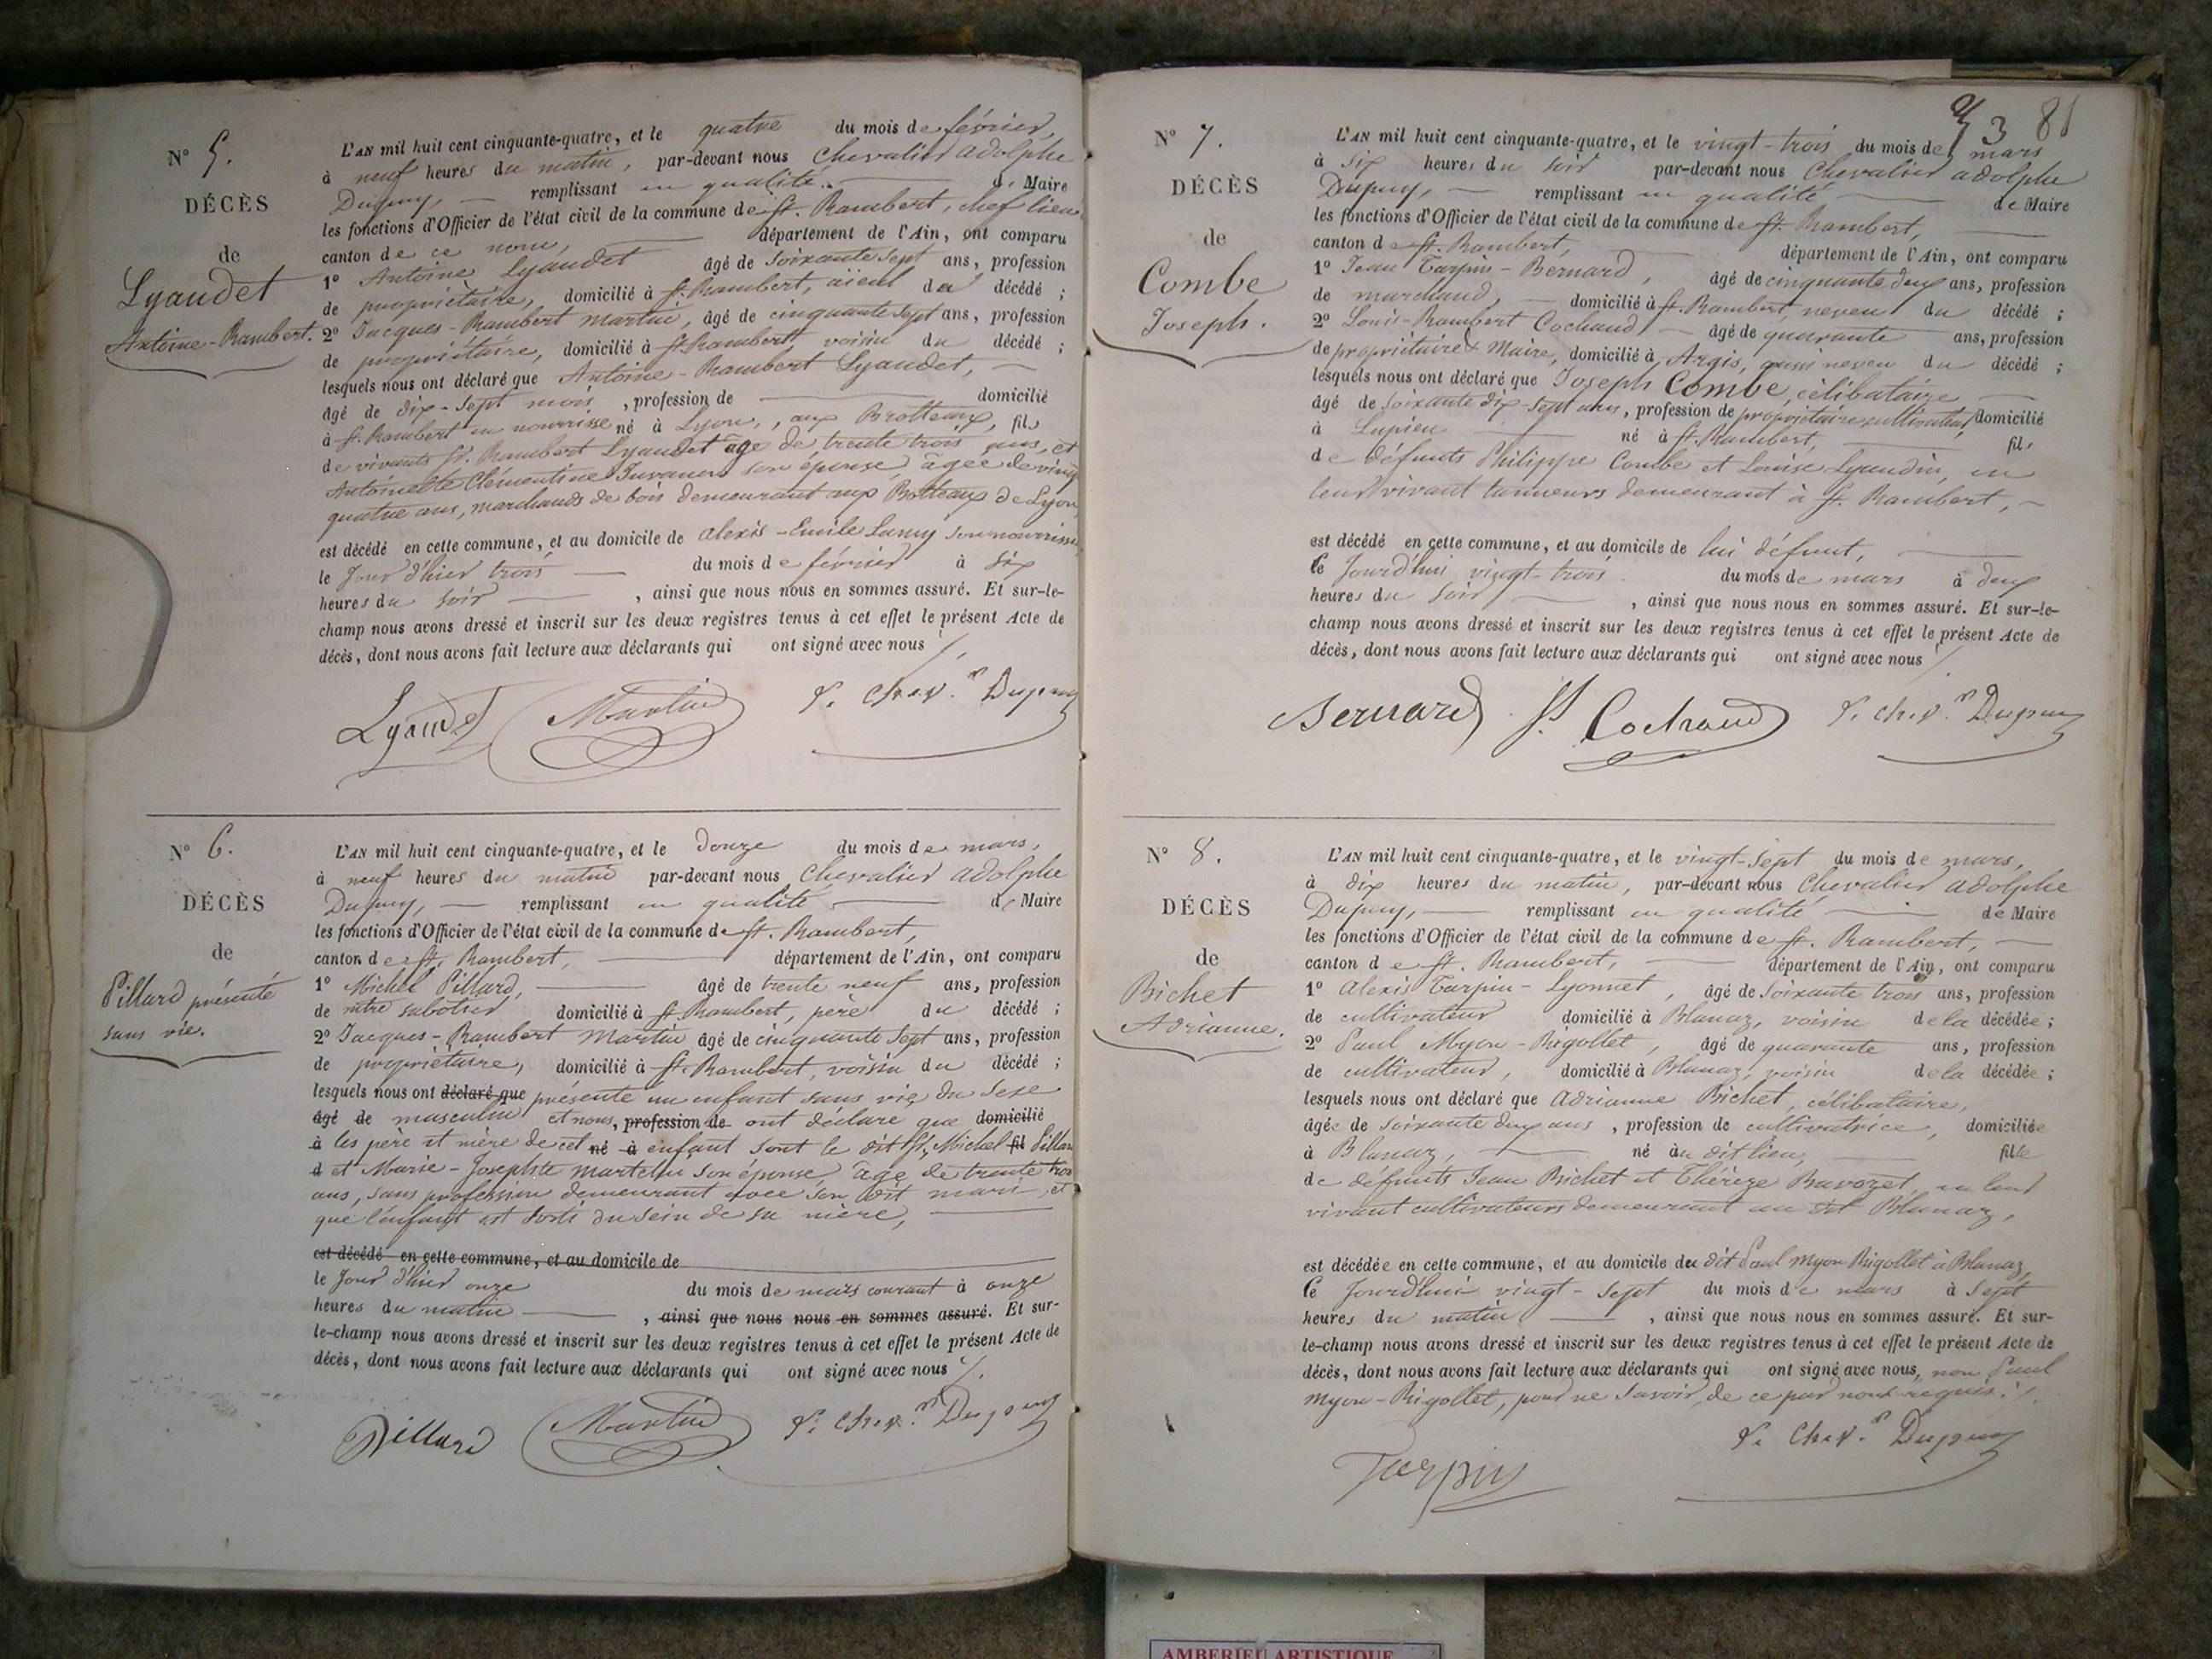 N° 5.
DÉCÈS
de
Lyaudet
Antoine-Rambert.
L'AN mil huit cent cinquante-quatre, et le quatre du mois de février,
à neuf heures du matin, par-devant nous Chevalier Adolphe
Dupuy, remplissant en qualité de Maire
les fonctions d'Officier de l'état civil de la commune de St. Rambert, chef lieu
canton de ce nom, département de l'Ain, ont comparu
1° Antoine Lyaudet âgé de soixante sept ans, profession
de propriétaire, domicilié à St. Rambert, aïeul du décédé ;
2° Jacques-Rambert Martin, âgé de cinquante sept ans, profession
de propriétaire, domicilié à St. Rambert, voisin du décédé ;
lesquels nous ont déclaré que Antoine-Rambert Lyaudet,
âgé de dix-sept mois, profession de domicilié
à St. Rambert en nourrisse né à Lyon, aux Brotteaux, fils
de vivants St. Rambert Lyaudet âgé de trente trois ans, et
Antoinette Clémentine son épouse, âgée de vingt
quatre ans, marchands de bois demeurant aux Botteaux de Lyon
est décédé en cette commune, et au domicile de Alexis-Emile Lamy son nourrissier
le Jour d'hier trois du mois de février à six
heures du soir, ainsi que nous nous en sommes assuré. Et sur-le-
champ nous avons dressé et inscrit sur les deux registres tenus à cet effet le présent Acte de
décès, dont nous avons fait lecture aux déclarants qui ont signé avec nous
Lyaudet Martin Chev. Dupuy
N° 6.
DÉCÈS
de
Pillard présenté
sans vie.
L'AN mil huit cent cinquante-quatre, et le douze du mois de mars,
à neuf heures du matin par-devant nous Chevalier Adolphe
Dupuy, remplissant en qualité de Maire
les fonctions d'Officier de l'état civil de la commune de St. Rambert,
canton de St. Rambert, département de l'Ain, ont comparu
1° Michel Pillard, âgé de trente neuf ans, profession
de sabotier domicilié à St. Rambert, père du décédé ;
2° Jacques-Rambert Martin âgé de cinquante sept ans, profession
de propriétaire, domicilié à St. Rambert, voisin du décédé ;
lesquels nous ont déclaré que présenté un enfant sans vie du sexe
âgé de masculin et nous, profession de ont déclaré que domicilié
à les père et mère de cet né à enfant sont le dit Sr. Michel fil Pillard
d et Marie-Josephte Martelin son épouse, âgé de trente trois
ans, sans profession demeurant avec son dit mari, et
que l'enfant est sorti du sein de sa mère,
est décédé en cette commune, et au domicile de
le Jour d'hier onze du mois de mars courant à onze
heures du matin, ainsi que nous nous en sommes assuré. Et sur-
le-champ nous avons dressé et inscrit sur les deux registres tenus à cet effet le présent Acte de
décès, dont nous avons fait lecture aux déclarants qui ont signé avec nous
Pillard Martin Chev. Dupuy
3 81
N° 7.
DÉCÈS
de
Combe
Joseph.
L'AN mil huit cent cinquante-quatre, et le vingt-trois du mois de mars
à six heures du soir par-devant nous Chevalier Adolphe
Dupuy, remplissant en qualité de Maire
les fonctions d'Officier de l'état civil de la commune de St. Rambert,
canton de St. Rambert, département de l'Ain, ont comparu
1° Jean Tarpin-Bernard, âgé de cinquante deux ans, profession
de marchand, domicilié à St. Rambert, neveu du décédé ;
2° Louis-Rambert Cochaud âgé de quarante ans, profession
de propriétaire & Maire, domicilié à Argis, aussi neveu du décédé ;
lesquels nous ont déclaré que Joseph Combe, célibataire,
âgé de soixante dix-sept ans, profession de propriétaire cultivateur, domicilié
à Lupieu né à St. Rambert, fils
de défunts Philippe Combe et Louise Lyaudin, en
leur vivant tanneurs demeurant à St. Rambert,
est décédé en cette commune, et au domicile de lui défunt,
le Jourd'hui vingt-trois du mois de mars à deux
heures du soir, ainsi que nous nous en sommes assuré. Et sur-le-
champ nous avons dressé et inscrit sur les deux registres tenus à cet effet le présent Acte de
décès, dont nous avons fait lecture aux déclarants qui ont signé avec nous
Bernard Cochaud Chev. Dupuy
N° 8.
DÉCÈS
de
Bichet
Adrianne.
L'AN mil huit cent cinquante-quatre, et le vingt-sept du mois de mars,
à dix heures du matin, par-devant nous Chevalier Adolphe
Dupuy, remplissant en qualité de Maire
les fonctions d'Officier de l'état civil de la commune de St. Rambert,
canton de St. Rambert, département de l'Ain, ont comparu
1° Alexis Tarpin-Lyonnet, âgé de soixante trois ans, profession
de cultivateur domicilié à Blanaz, voisin de la décédée ;
2° Paul Myon-Rigollet, âgé de quarante ans, profession
de cultivateur, domicilié à Blanaz, voisin de la décédée ;
lesquels nous ont déclaré que Adrianne Bichet, célibataire,
âgée de soixante deux ans, profession de cultivatrice, domiciliée
à Blanaz, né au dit lieu, fille
de défunts Jean Bichet et Thérèze Ravozet, en leur
vivant cultivateurs demeurant au dit Blanaz,
est décédée en cette commune, et au domicile du dit Paul Myon Rigollet à Blanaz,
le Jourd'hui vingt-sept du mois de mars à sept
heures du matin, ainsi que nous nous en sommes assuré. Et sur-
le-champ nous avons dressé et inscrit sur les deux registres tenus à cet effet le présent Acte de
décès, dont nous avons fait lecture aux déclarants qui ont signé avec nous, non Paul
Myon-Rigollet, pour ne savoir, de ce par nous requis.
Tarpin Chev. Dupuy
AMBERIEU ARTISTIQUE